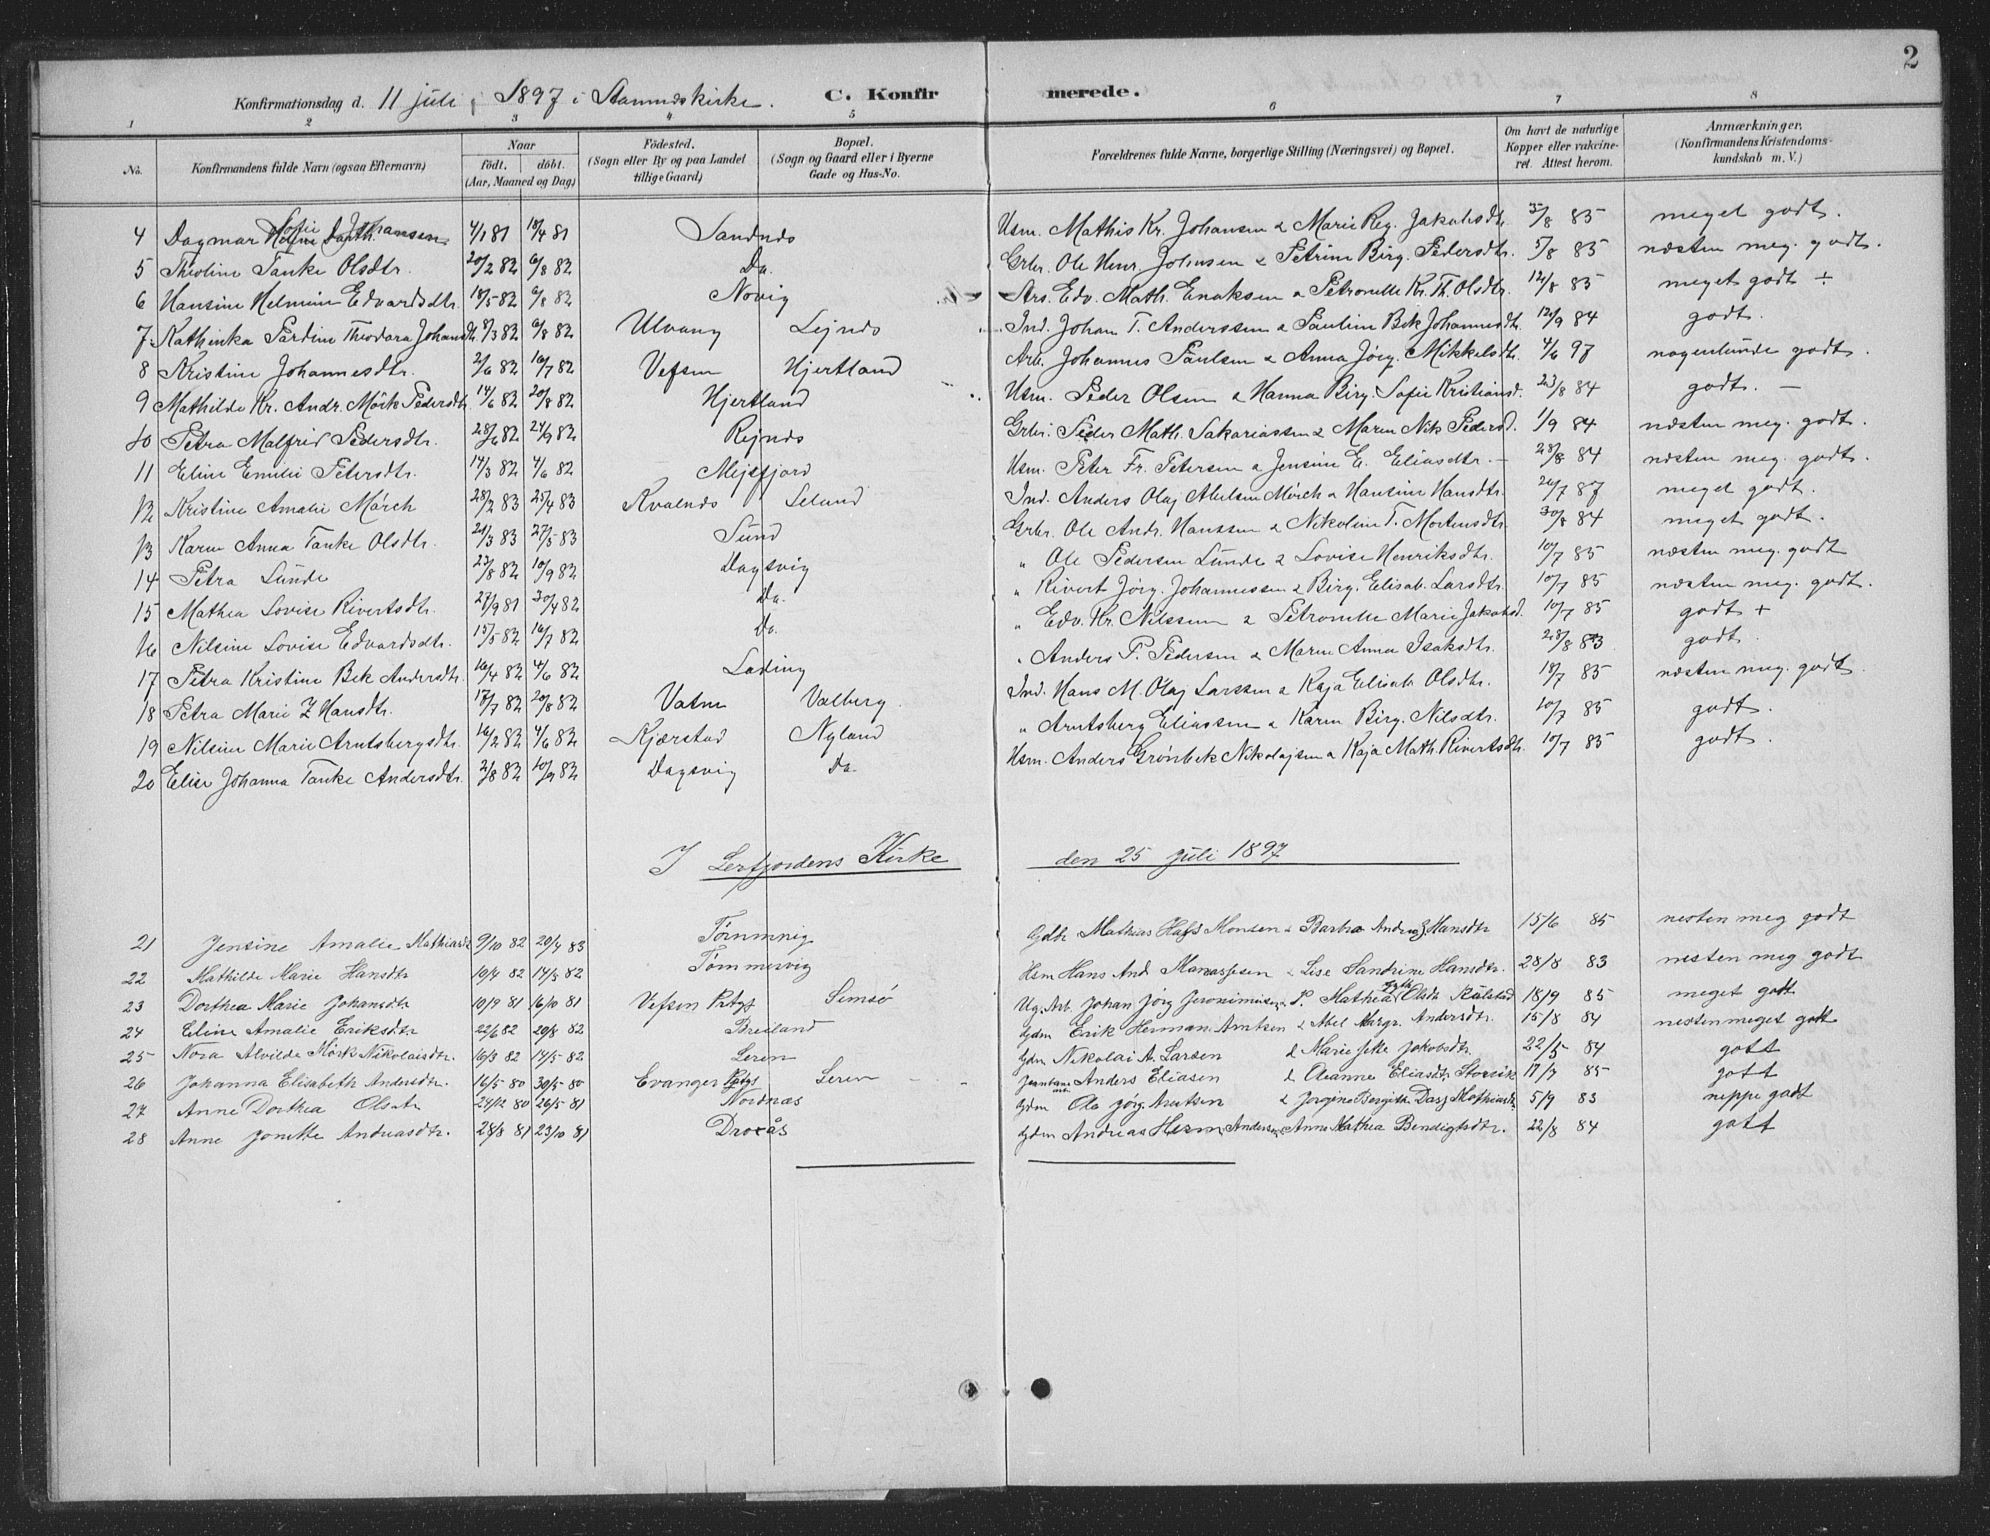 2
Konfirmationsdag d. 11 juli 1897 i Stamnæskirke. C. Konfir merede.
1 2 3 4 5 6 7 8
No. Konfirmandens fulde Navn (ogsaa Efternavn) Naar Födt. döbt. (Aar, Maaned og Dag) Födested. (Sogn eller By og paa Landet tillige Gaard) Bopæl. (Sogn og Gaard eller i Byerne Gade og Hus-No. Forældrenes fulde Navne, borgerlige Stilling (Næringsvei) og Bopæl. Om havt de naturlige Kopper eller vakcineret. Attest herom. Anmærkninger. (Konfirmandens Kristendomskundskab m. V.)
4 Dagmar Sofie Johansen 4/1 81 18/4 81 Sandnæs Usm. Mathis Kr. Johansen & Marie Reg. Jakobsdtr. 5/8 85 meget godt.
5 Theoline Tanke Olsdtr. 20/2 82 6/8 82 Do. Grbr. Ole Henr. Johnsen & Petrine Birg. Pedersdtr. 5/8 85 næsten meg. godt.
6 Hansine Helmine Edvardsdtr. 18/5 82 6/8 82 Novig Ars. Edv. Math. Enoksen & Petronelle Kr. Th. Olsdtr. 12/8 85 meget godt ÷
7 Kathinka Pauline Theodora Johansdtr. 8/3 82 6/8 82 Ulvang Lejnæs Ind. Johan T. Anderssen & Pauline Bek Johannesdtr. 12/9 84 godt.
8 Kristine Johannesdtr. 2/6 82 16/7 82 Vefsen Hjertland Arb. Johannes Paulsen & Anna Jörg. Mikkelsdtr. 4/6 97 nogenlunde godt.
9 Mathilde Kr. Andr. Mörk Pedersdtr. 14/6 82 20/8 82 Hjertland Usm. Peder Olsen & Hanna Birg. Sofie Kristiansd. 23/8 84 godt. –
10 Petra Malfrid Pedersdtr. 28/6 82 24/9 82 Rejnæs Grbr. Peder Math. Sakariassen & Maren Nik Pedersd. 1/9 84 næsten meg. godt.
11 Eline Emelie Petersdtr. 14/3 82 4/6 82 Mejsfjord Usm. Peter Fr. Petersen & Jensine E. Eliasdtr. – 28/8 84 næsten meg. godt.
12 Kristine Amalie Mörch 28/2 83 25/4 83 Kvalnæs Leland Ind. Anders Olaj Abelsen Mörch & Hansine Hansdtr. 26/7 87 meget godt.
13 Karen Anna Tanke Olsdtr. 21/3 83 27/5 83 Sund Grbr. Ole Andr. Hanssen & Nikoline T. Mortensdtr. 30/8 84 meget godt.
14 Petra Lunde 23/8 82 10/9 82 Dagsvig " Ole Pedersen Lunde & Lovise Henriksdtr. 10/7 85 næsten meg. godt
15 Mathea Lovise Rivertsdtr. 27/9 81 30/4 82 Do. " Rivert Jörg. Johannessen & Birg. Elisab. Larsdtr. 10/7 85 næsten meg. godt.
16 Nilsine Lovise Edvardsdtr. 15/5 82 16/7 82 Do. " Edv. Kr. Nilssen & Petronelle Marie Jakobsd. 10/7 85 godt +
17 Petra Kristine Bek Andersdtr. 16/4 82 4/6 82 Lading " Anders P. Pedersen & Maren Anna Isaksdtr. 28/8 83 godt.
18 Petra Marie Z Hansdtr. 17/7 82 20/8 82 Vatne Valberg. Ind. Hans M. Olaj Larssen & Kaja Elisab. Olsdtr. 18/7 85 næsten meg. godt
19 Nilsine Marie Arntsbergsdtr. 16/2 82 4/6 82 Kjærstad Nyland " Arntsberg Eliassen & Karen Birg. Nilsdtr. 10/7 85 godt.
20 Elise Johanna Tanke Andersdtr. 2/8 82 10/9 82 Dagsvig Do. Usm. Anders Grönbek Nikolajsen & Kaja Math. Rivertsdtr. 10/7 85 godt.
I Lerfjordens Kirke den 25 juli 1897
21 Jensine Amalie Mathiasdtr 9/10 82 20/4 83 Gdbr Mathias Monsen & Barbra Hansdtr 15/6 85 nesten meg godt
22 Mathilde Marie Hansdtr 19/4 82 14/5 82 Tömmervig Hsm Hans And Manassesen & Lise Sandrine Hansdtr. 28/8 83 nesten meg godt
23 Dorthea Marie Johansdtr 10/9 81 16/10 81 Vefsen Prtgj Simsö Ug. Arb. Johan Jörg Jeronimusen & P. Mathea Olsdtr Kulstad 18/9 85 meget gott
24 Eline Amalie Eriksdtr 22/6 82 20/8 82 Breiland Gdm Erik Herman Arntsen & Abel Margr. Andersdtr. 15/8 84 nestenmeget gott
25 Nora Alvilde Mörk Nikolaisdtr. 16/3 82 14/5 82 Leren Gdm Nikolai A. Larsen & Marie Jakobsdtr 22/5 84 gott
26 Johanna Elisabeth Andersdtr. 16/5 80 30/5 80 Evanger Prtgj Leren Anders Eliasen & Oleanne Eliasdtr Storvik 17/7 85 gott
27 Anne Dorthea Olsdtr 24/12 80 26/5 81 Nordnæs Gdm Ole Jörg. Arntsen & Jorgine Bergith Mathiasdtr 5/9 83 neppe godt
28 Anne Jonette Andreasdtr. 28/8 81 23/10 81 Dravås Gdm Andreas Herm. Andersen, Anne Mathea Bendigtsdtr. 22/8 84 gott